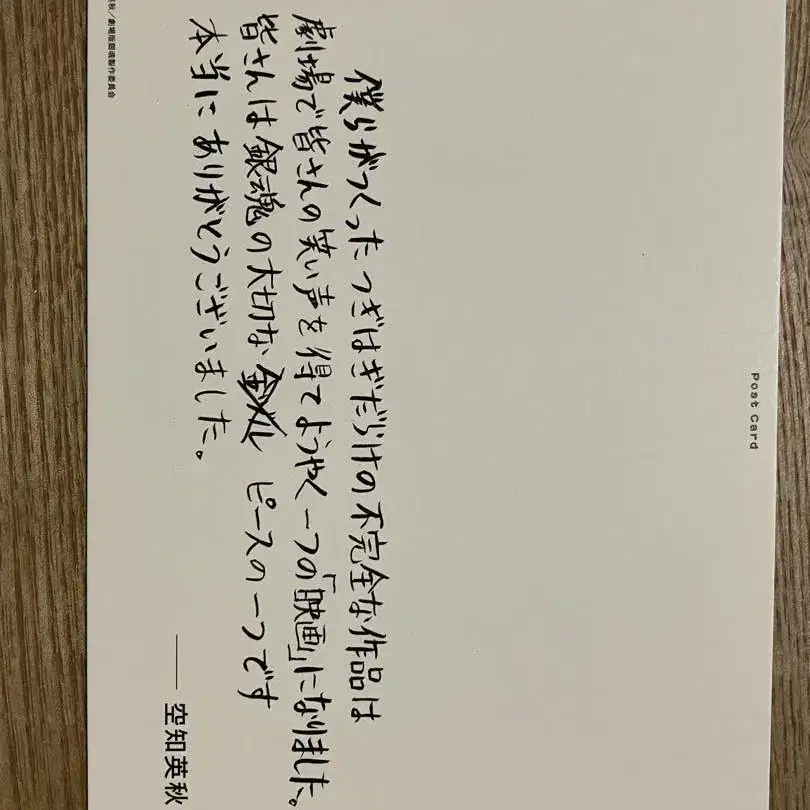 僕らがつくったつぎはぎだらけの不完全な作品は
劇場で皆さんの笑い声を得てようやく一つの「映画」になりました。
皆さんは銀魂の大切な 金ヅル ピースの一つです
本当にありがとうございました。
── 空知英秋
秋／劇場版銀魂製作委員会
Post Card